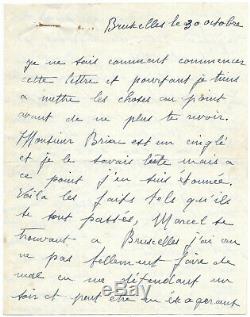 Bruxelles le 30 octobre
je ne sais comment commencer
cette lettre et pourtant je tiens
a mettre les choses au point
avant de ne plus te revoir.
Monsieur Briac est un cinglé
et je le savais mais a
ce point j'en suis étonnée.
Voila les faits tels qu'ils
se sont passés, Marcel se
trouvant a Bruxelles j'ai cru
ne pas tellement faire de
mal en me défendant un
soir et peut être en exagerant